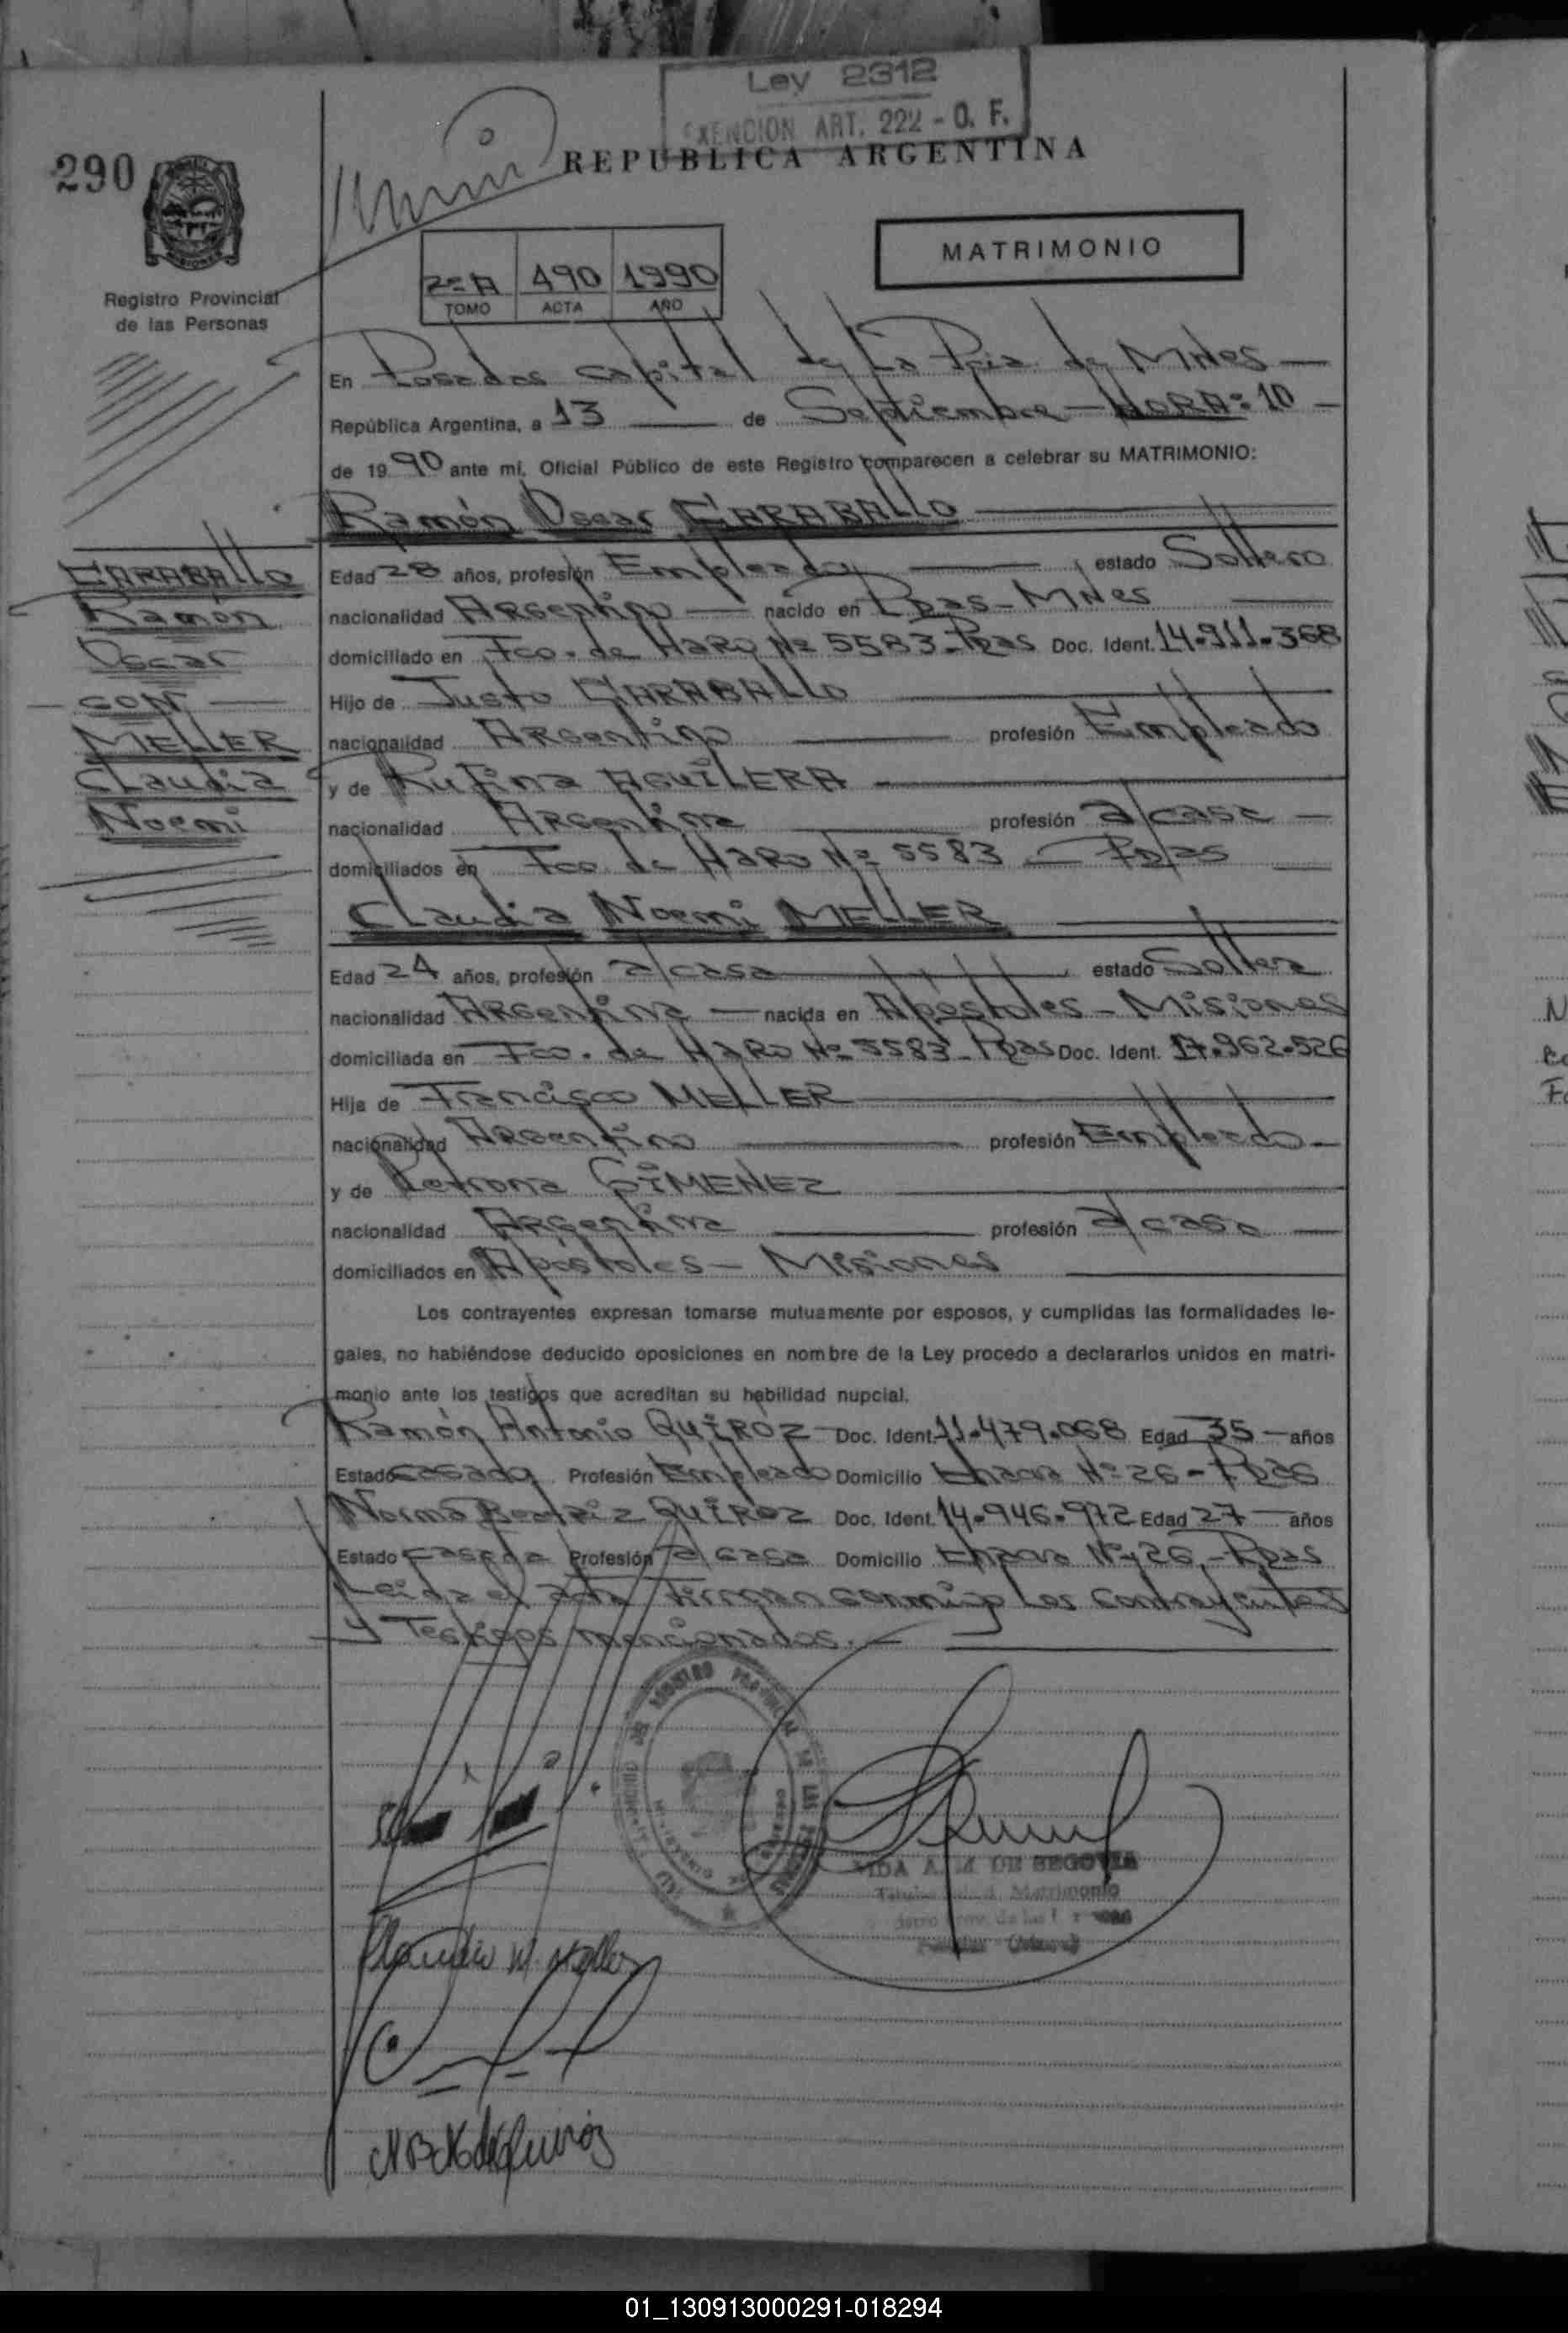 Ley 2312
EXENCION ART. 222 - O. F.
290
REPUBLICA ARGENTINA
MATRIMONIO
2=A 490 1990
TOMO ACTA AÑO
Registro Provincial
de las Personas
En Posadas Capital de La Pcia de MNes
República Argentina, a 13 de Septiembre - HORA: 10
de 1990 ante mí, Oficial Público de este Registro comparecen a celebrar su MATRIMONIO:
Ramón Oscar CARABALLO
CARABALLO
Ramón
Oscar
CON
MELLER
Claudia
Noemi
Edad 28 años, profesión Empleado estado Soltero
nacionalidad Argentino nacido en Pdas - MNes
domiciliado en Fco. de Haro Nº 5583 - Pdas Doc. Ident. 14.911.368
Hijo de Justo CARABALLO
nacionalidad Argentino profesión Empleado
y de Rufina AGUILERA
nacionalidad Argentina profesión a/casa
domiciliados en Fco. de Haro Nº 5583 - Pdas
Claudia Noemi MELLER
Edad 24 años, profesión a/casa estado Soltera
nacionalidad Argentina nacida en Apóstoles - Misiones
domiciliada en Fco. de Haro Nº 5583 - Pdas Doc. Ident. 17.962.526
Hija de Francisco MELLER
nacionalidad Argentino profesión Empleado
y de Petrona GIMENEZ
nacionalidad Argentina profesión a/casa
domiciliados en Apóstoles - Misiones
Los contrayentes expresan tomarse mutuamente por esposos, y cumplidas las formalidades le-
gales, no habiéndose deducido oposiciones en nombre de la Ley procedo a declararlos unidos en matri-
monio ante los testigos que acreditan su habilidad nupcial.
Ramón Antonio QUIROZ Doc. Ident. 11.479.068 Edad 35 años
Estado casado Profesión Empleado Domicilio Nº 26 - Pdas
Norma Beatriz QUIROZ Doc. Ident. 14.946.972 Edad 27 años
Estado casada Profesión a/casa Domicilio Nº 26 - Pdas
Leida el acta firman conmigo los contrayentes
y Testigos mencionados.
A. M. DE SEGOVIA
Matrimonio
01_130913000291-018294